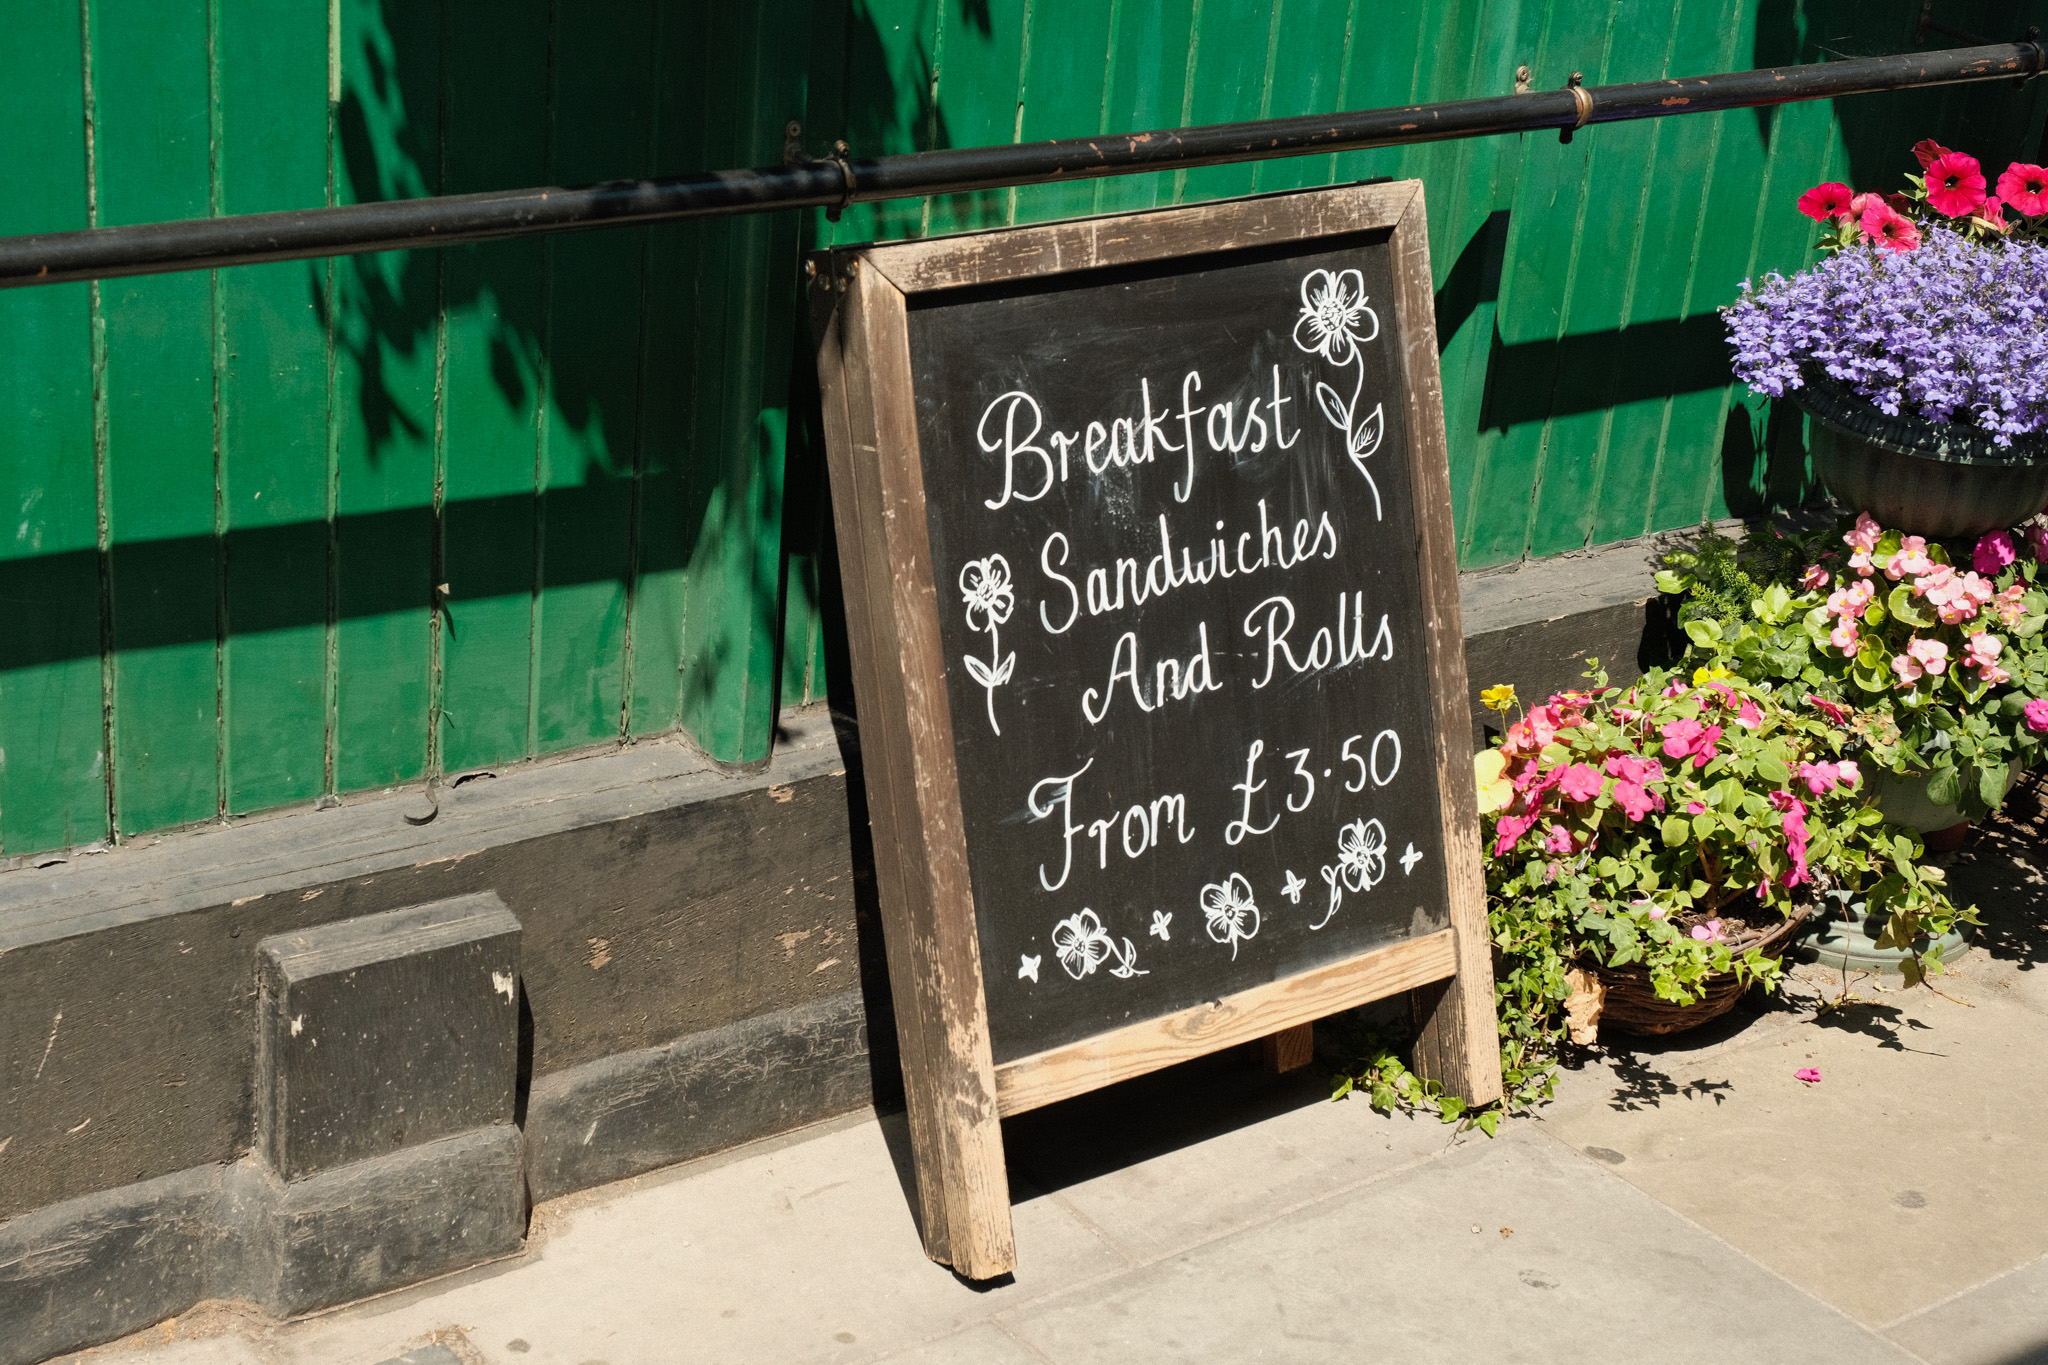 Breakfast
Sandwiches
And Rolls
From £3·50